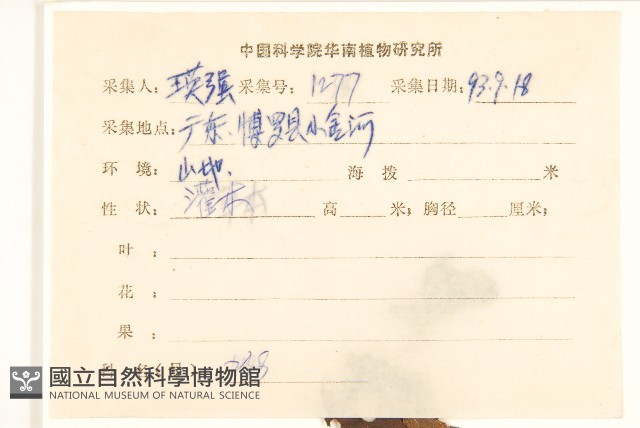 中国科学院华南植物研究所
采集人: 王英强 采集号: 1277 采集日期: 93.9.18
采集地点: 广东、博罗县小金河
环 境: 山地、 海 拨 米
性 状: 灌木 高 米; 胸径 厘米;
叶 :
花 :
果 :
國立自然科學博物館
NATIONAL MUSEUM OF NATURAL SCIENCE